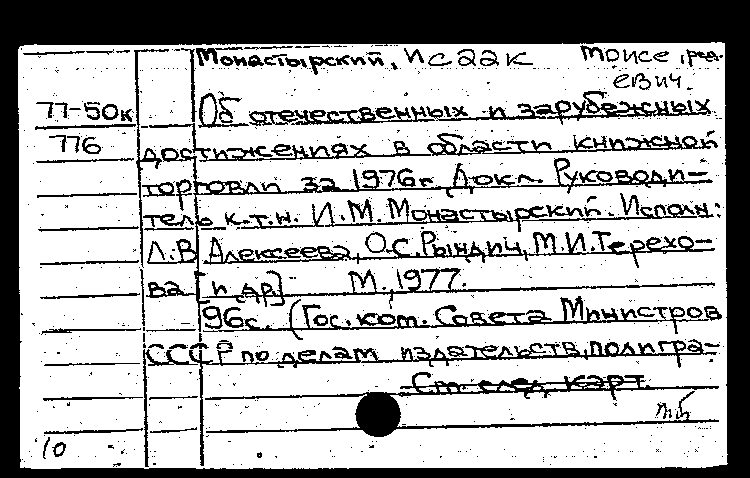 Монастырский, Исаак Моисе, ред.
евич.
77-50к Об отечественных и зарубежных
776 достижениях в области книжной
торговли за 1976г. Докл. Руководи-
тель к.т.н. И.М.Монастырский. Исполн:
Л.В Алексеева, О.С.Рындич, М.И.Терехо-
ва [и др] М., 1977.
96с. (Гос. ком. Совета Министров
СССР по делам издательств, полигра-
См. след. карт.
10